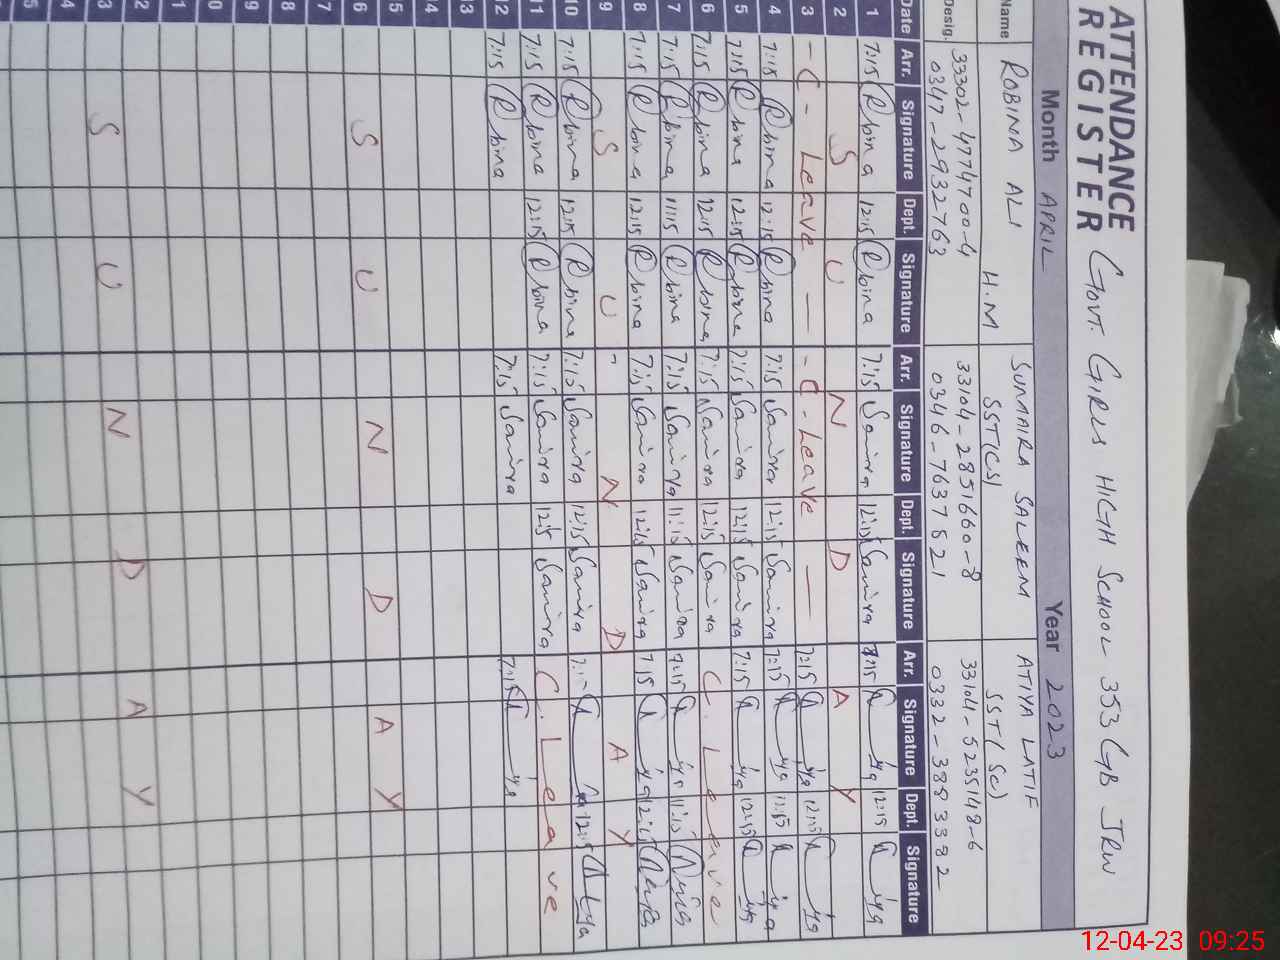 ATTENDANCE REGISTER
GOVT. GIRLS HIGH SCHOOL 353 GB JRW
Month APRIL Year 2023
Name ROBINA ALI SUMAIRA SALEEM ATIYA LATIF
Desig. H.M SST(CS) SST(SC)
33302-4774700-4 33104-2851660-8 33104-5235148-6
0347-2932763 0346-7637821 0332-3883392
Date Arr. Signature Dept. Signature Arr. Signature Dept. Signature Arr. Signature Dept. Signature
1 7:15 Rbina 12:15 Rbina 7:15 Samira 12:15 Samira 7:15 12:15
2 S U N D A Y
3 - C - Leave - C - Leave 7:15 12:15
4 7:15 Rbina 12:15 Rbina 7:15 Samira 12:15 Samira 7:15 12:15
5 7:15 Rbina 12:15 Rbina 7:15 Samira 12:15 Samira 7:15 12:15
6 7:15 Rbina 12:15 Rbina 7:15 Samira 12:15 Samira C. Leave
7 7:15 Rbina 11:15 Rbina 7:15 Samira 11:15 Samira 7:15 11:15
8 7:15 Rbina 12:15 Rbina 7:15 Samira 12:15 Samira 7:15 12:15
9 S U N D A Y
10 7:15 Rbina 12:15 Rbina 7:15 Samira 12:15 Samira 12:15
11 7:15 Rbina 12:15 Rbina 7:15 Samira 12:15 Samira C. Leave
12 7:15 Rbina 7:15 Samira 7:15
13
14
15
6 S U N D A Y
7
8
9
0
1
2
3 S U N D A Y
4
5
12-04-23 09:25